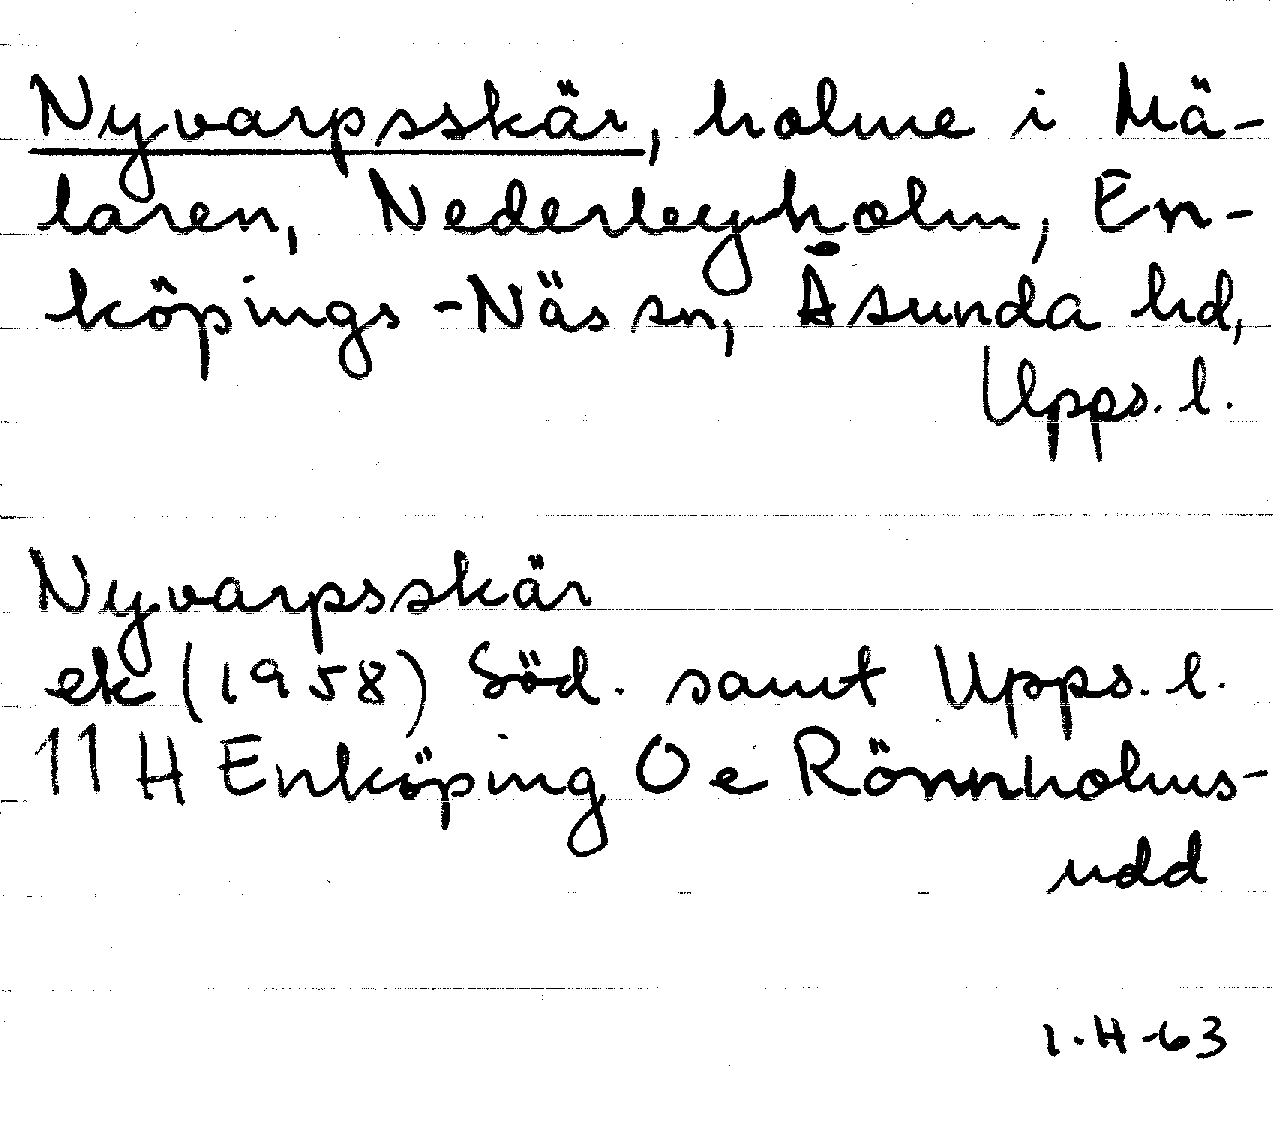 Nyvarpsskär, holme i Mä-
laren, Nederleyholm, En-
köpings-Näs sn, Åsunda hd,
Upps. l.
Nyvarpsskär
ek (1958) Söd. samt Upps. l.
11 H Enköping O e Rönnholms-
udd
1.H-63